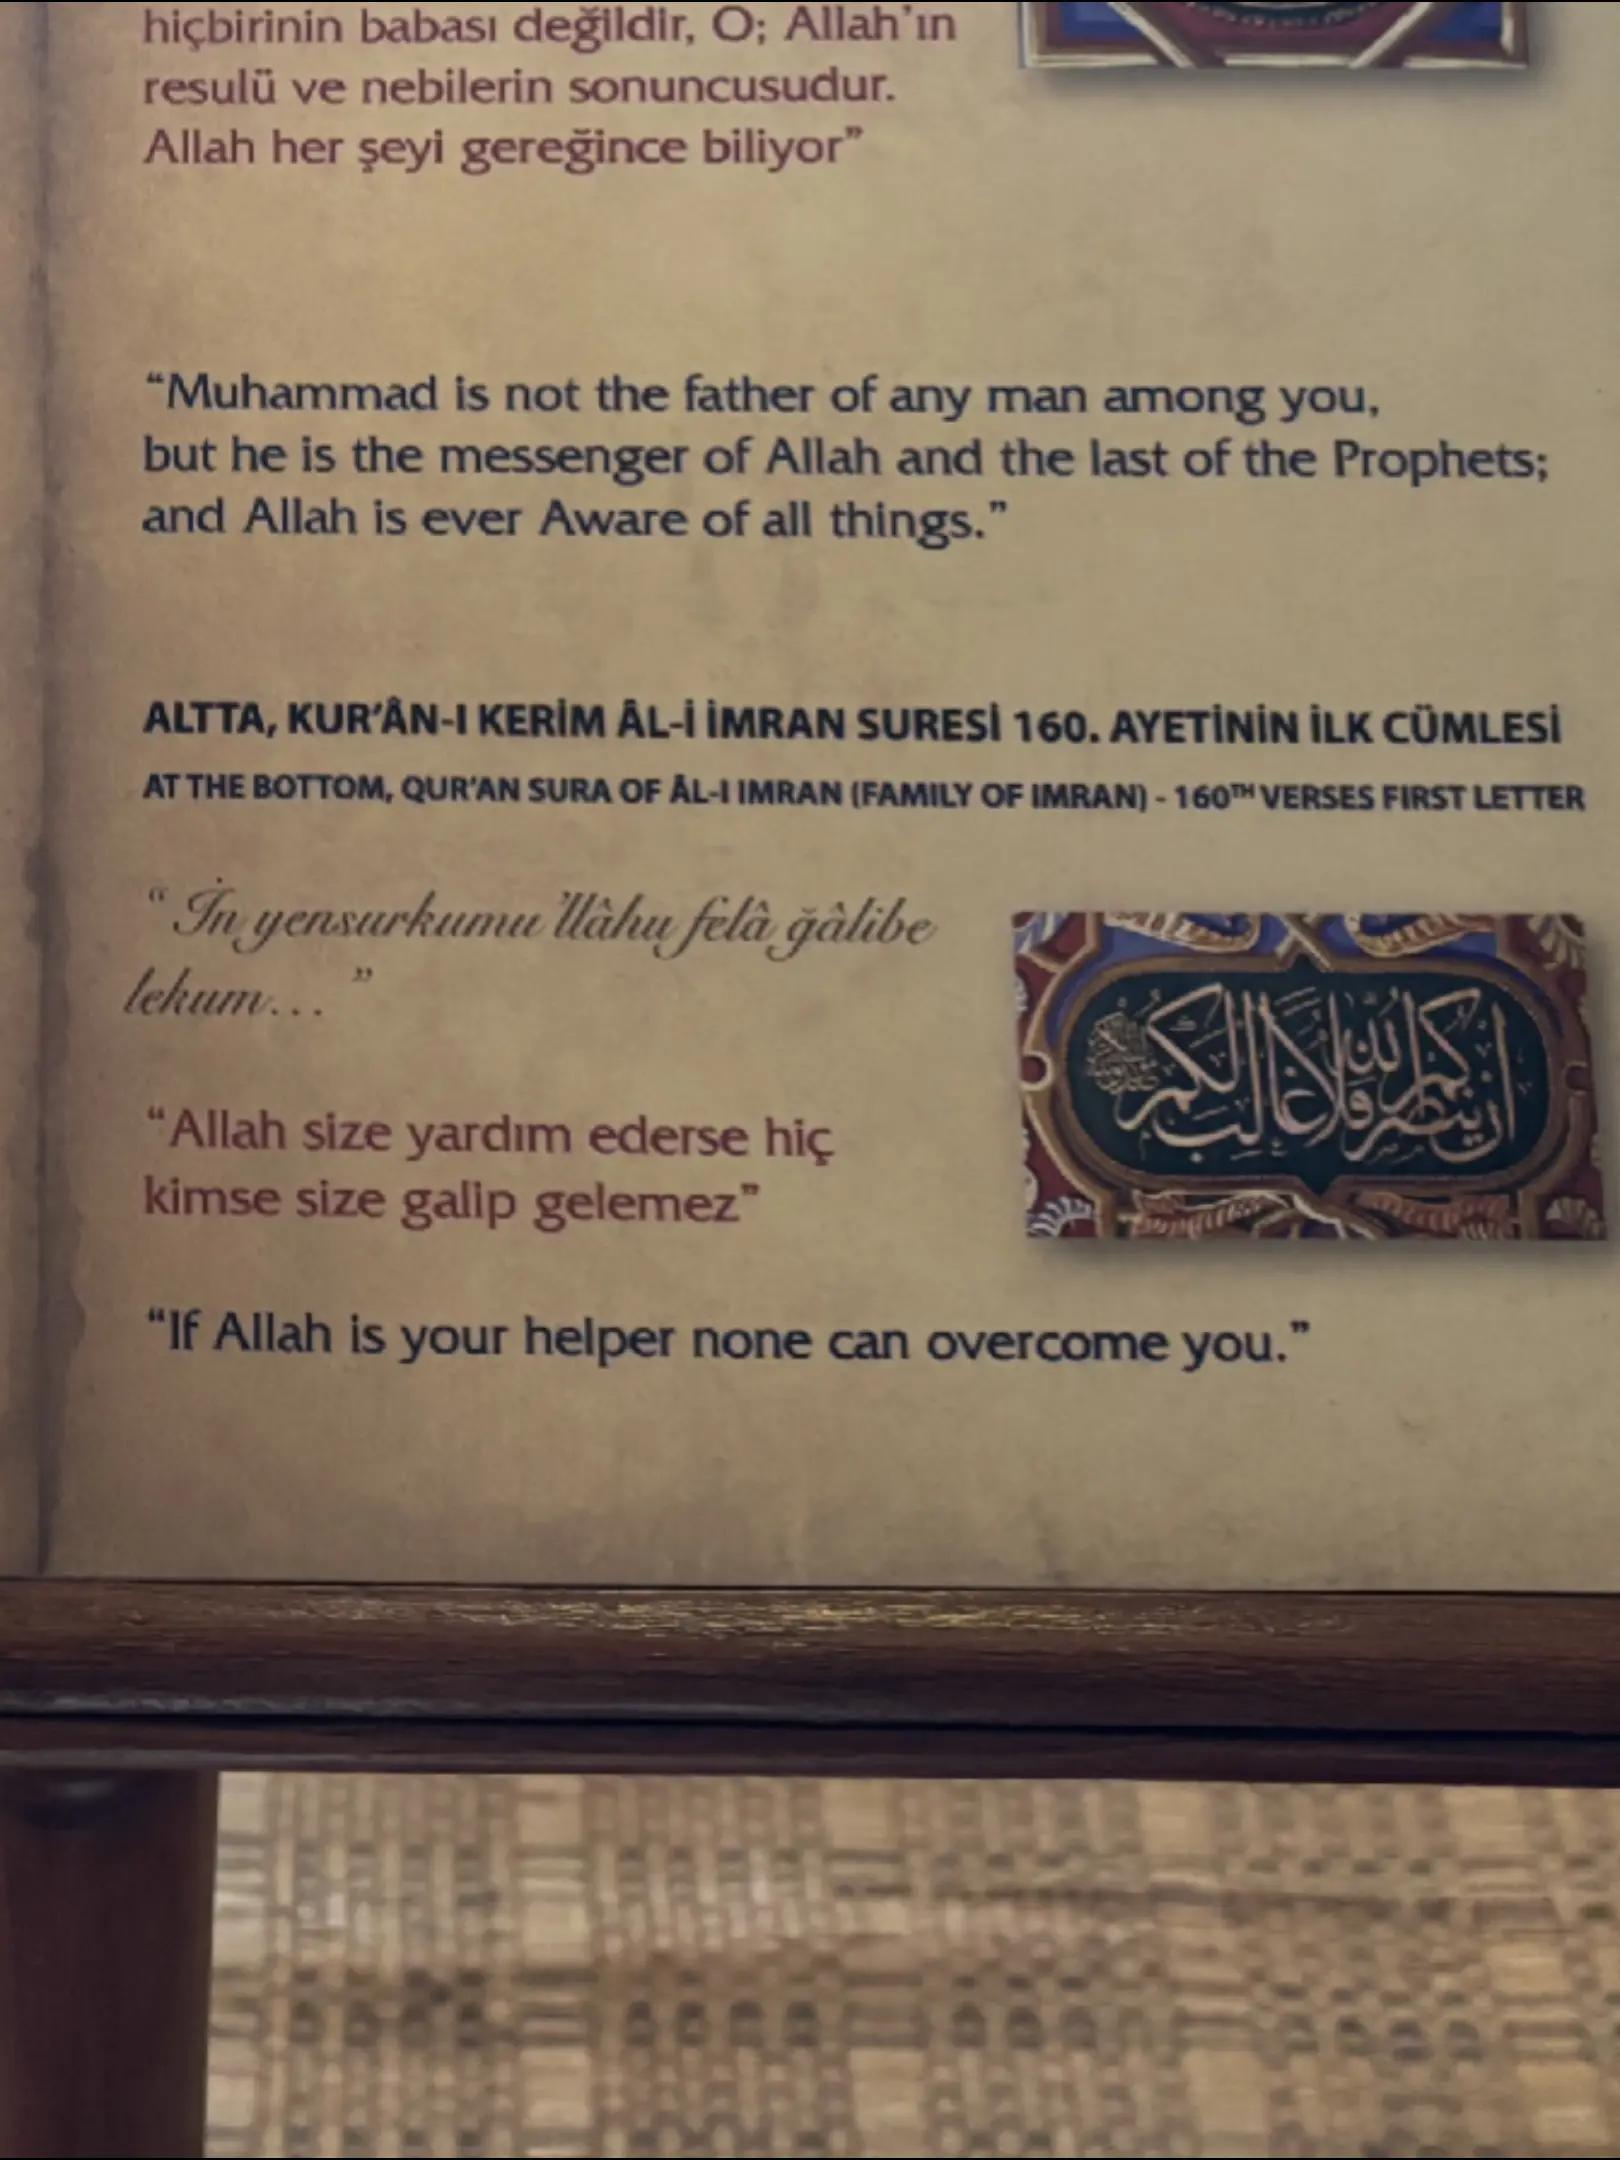 hiçbirinin babası değildir, O; Allah'ın
resulü ve nebilerin sonuncusudur.
Allah her şeyi gereğince biliyor”
“Muhammad is not the father of any man among you,
but he is the messenger of Allah and the last of the Prophets;
and Allah is ever Aware of all things.”
ALTTA, KUR'ÂN-I KERİM ÂL-İ İMRAN SURESİ 160. AYETİNİN İLK CÜMLESİ
AT THE BOTTOM, QUR'AN SURA OF ÂL-I IMRAN (FAMILY OF IMRAN) - 160TH VERSES FIRST LETTER
“İn yensurkumu'llâhu felâ ğâlibe
lekum...”
ان ينصركم الله فلا غالب لكم
“Allah size yardım ederse hiç
kimse size galip gelemez”
“If Allah is your helper none can overcome you.”